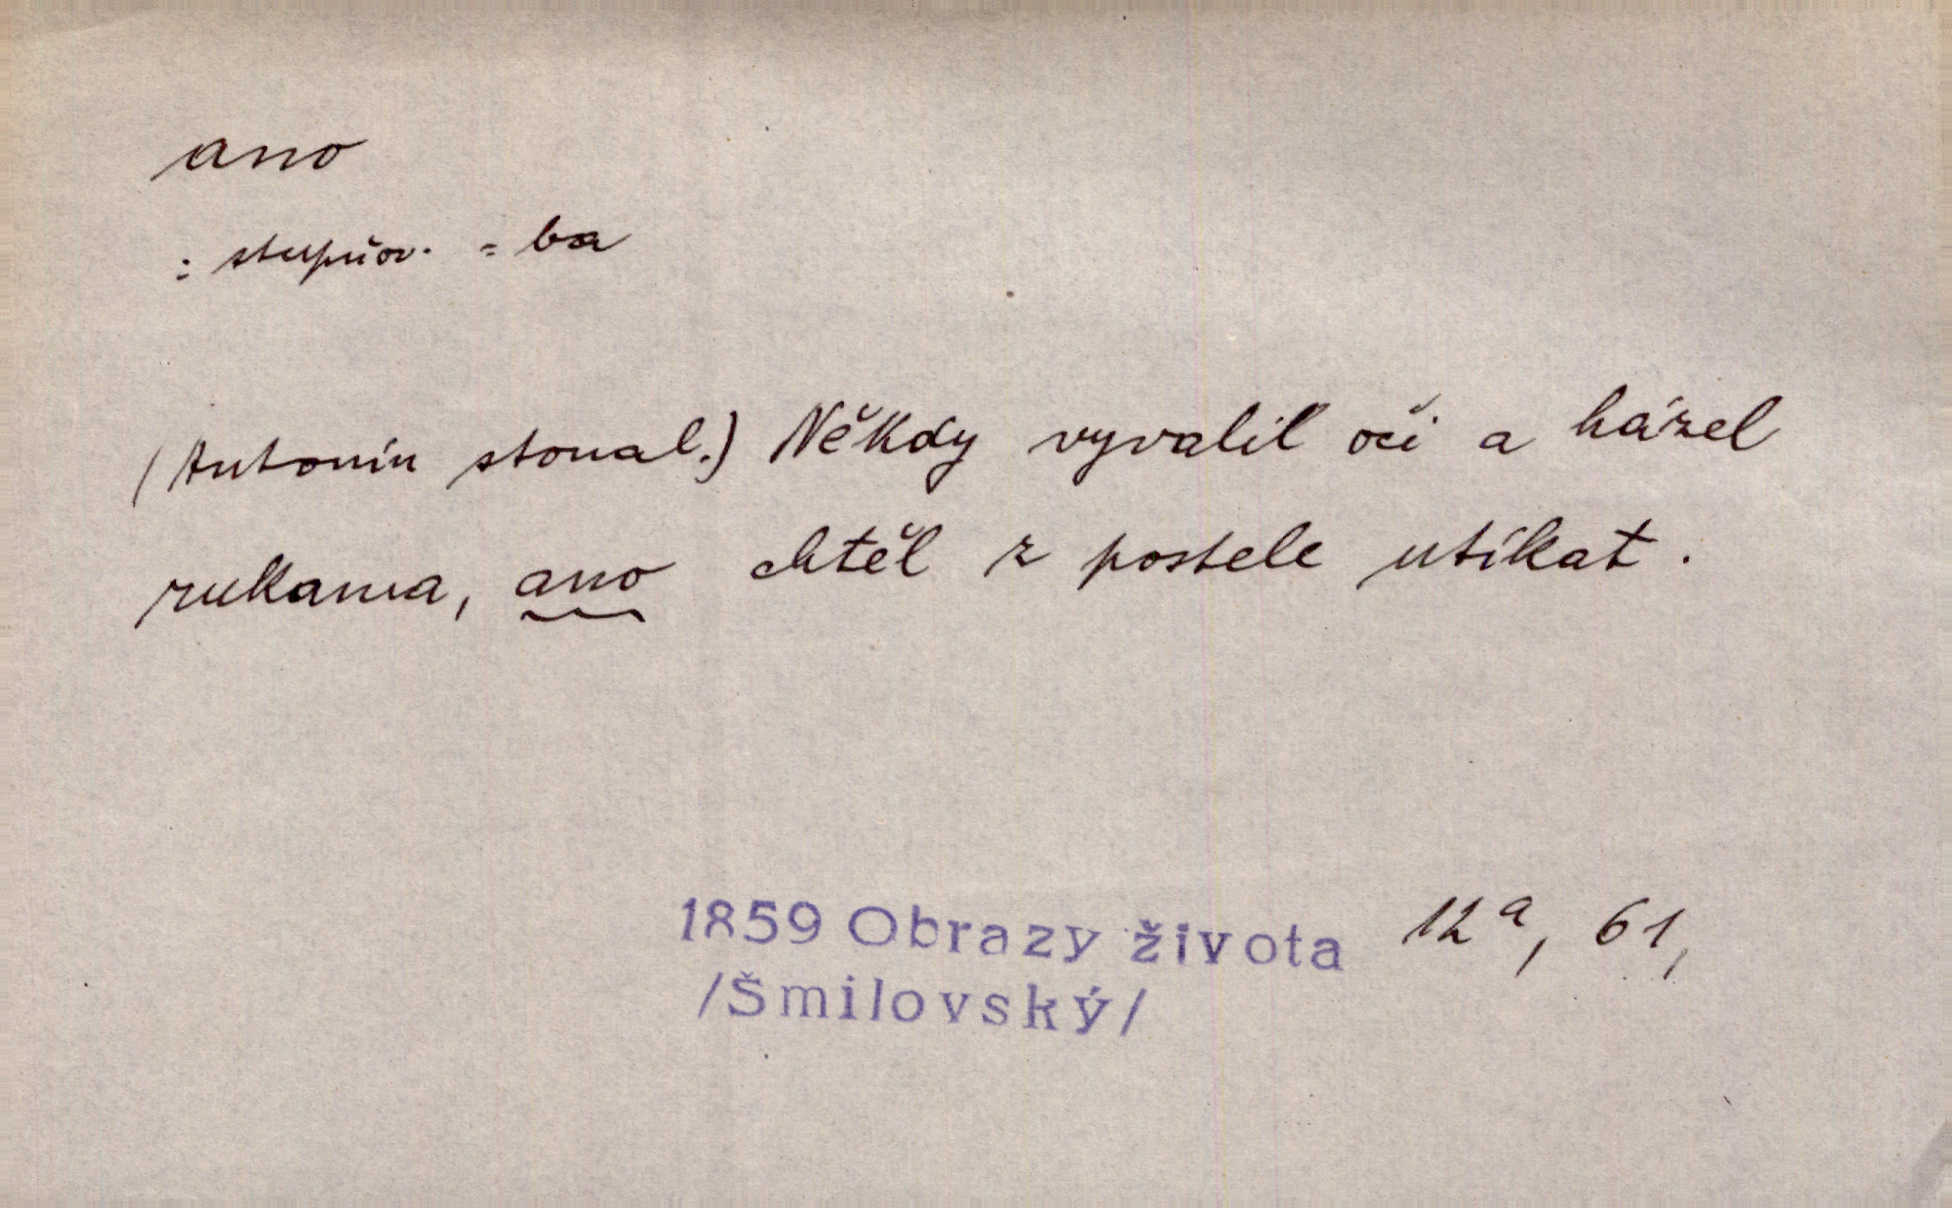 ano
: stupňov. = ba
(Antonín stonal.) Někdy vyvalil oči a házel
rukama, ano chtěl z postele utíkat.
1859 Obrazy života 12a, 61,
/Šmilovský/